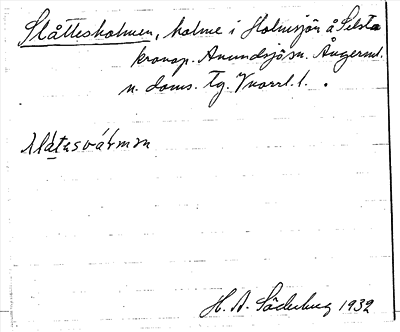 Slåttesholmen, holme i Holmsjön å Selsta
kronop. Anundsjö sn. Ångerml.
n. doms. Tg. Vnorrl. l.
H. A. Söderberg 1932